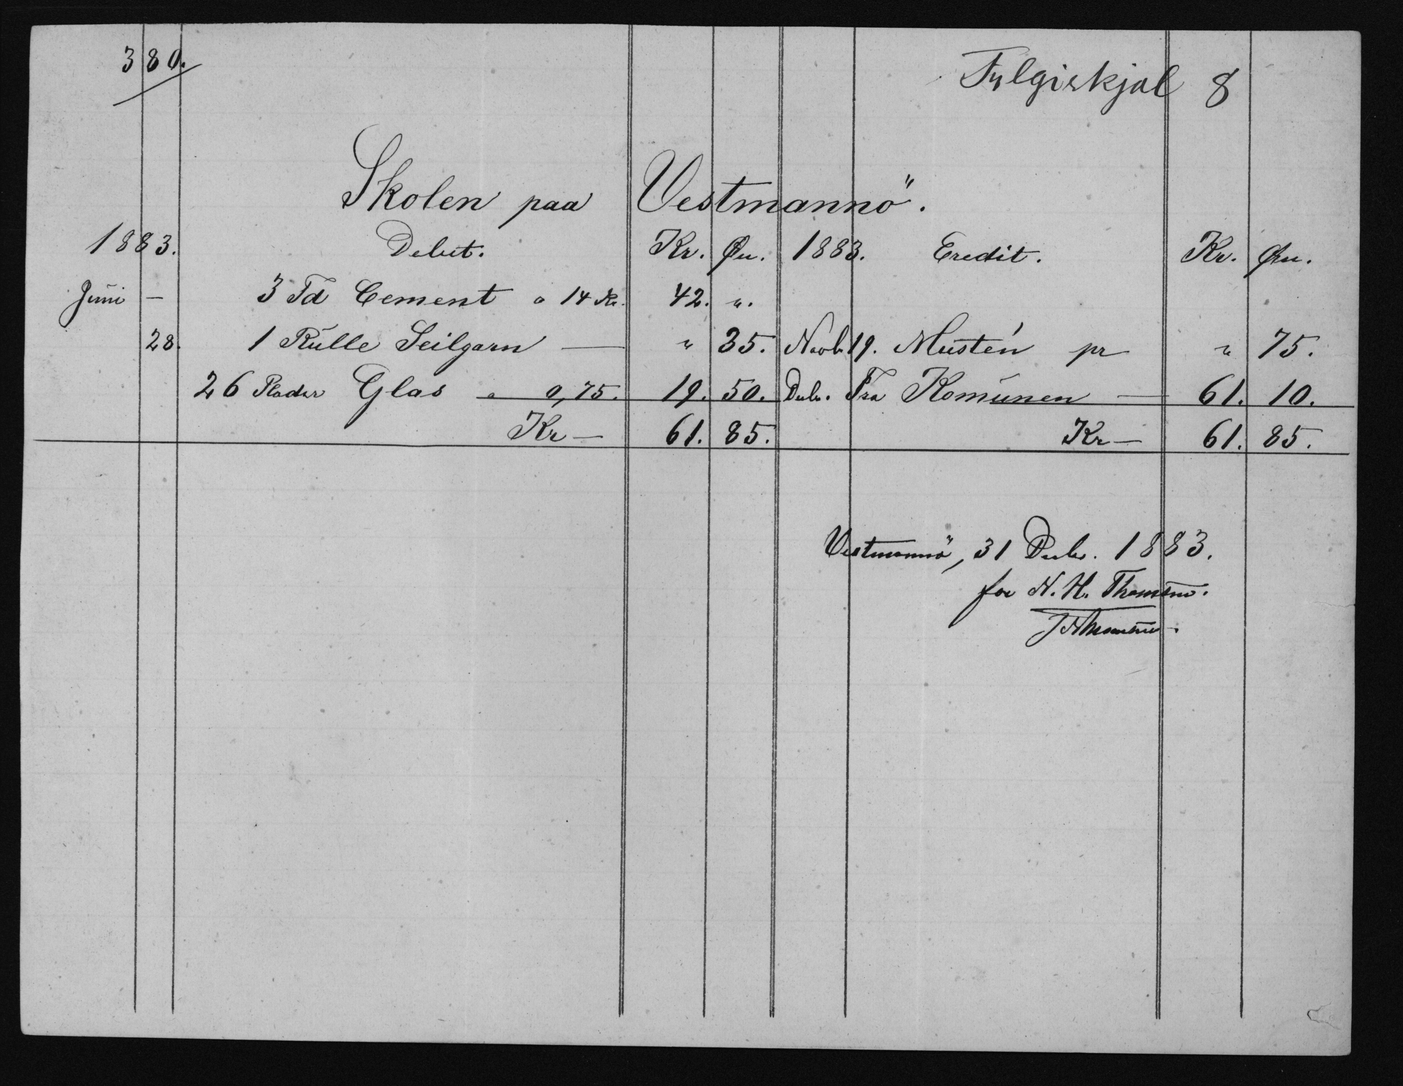 380.
Fylgiskjal 8
Skolen paa Vestmannö.
1883. Debet. Kr. Øu. 1883. Credit. Kr. Øu.
Juni — 3 Td Cement a 14 Kr. 42. „.
28. 1 Rulle Seilgarn — „ 35. Novb 19. pr „ 75.
26 Plader Glas a 0,75. 19. 50. Debr. Fra Komunen — 61. 10.
Kr — 61. 85. Kr — 61. 85.
Vestmannö, 31 Decbr. 1883.
for N. H. Thomsen.